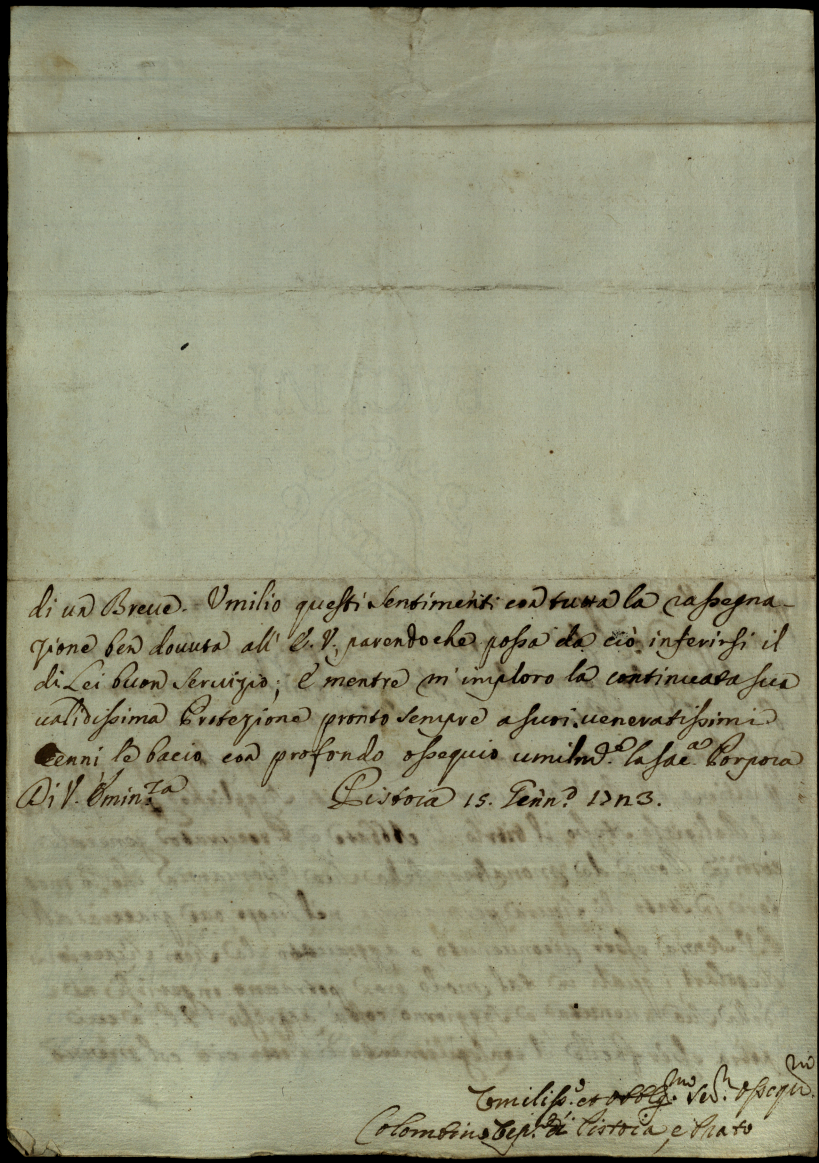 di un Breue. Vmilio questi sentimenti con tutta la rassegna-
zione ben douuta all' E. V., parendo che possa da ciò inferirsi il
di Lei buon seruizio; E mentre m'imploro la continuata sua
ualidissima Protezione pronto sempre a suoi ueneratissimi
Cenni le bacio con profondo ossequio umilmd.e la sac.a Porpora
Di V. Eminza Pistoia 15. Genn.o 1743.
Vmiliss.o et obblig.mo Ser.r ossequi.mo
Colombino di Pistoia, e Prato